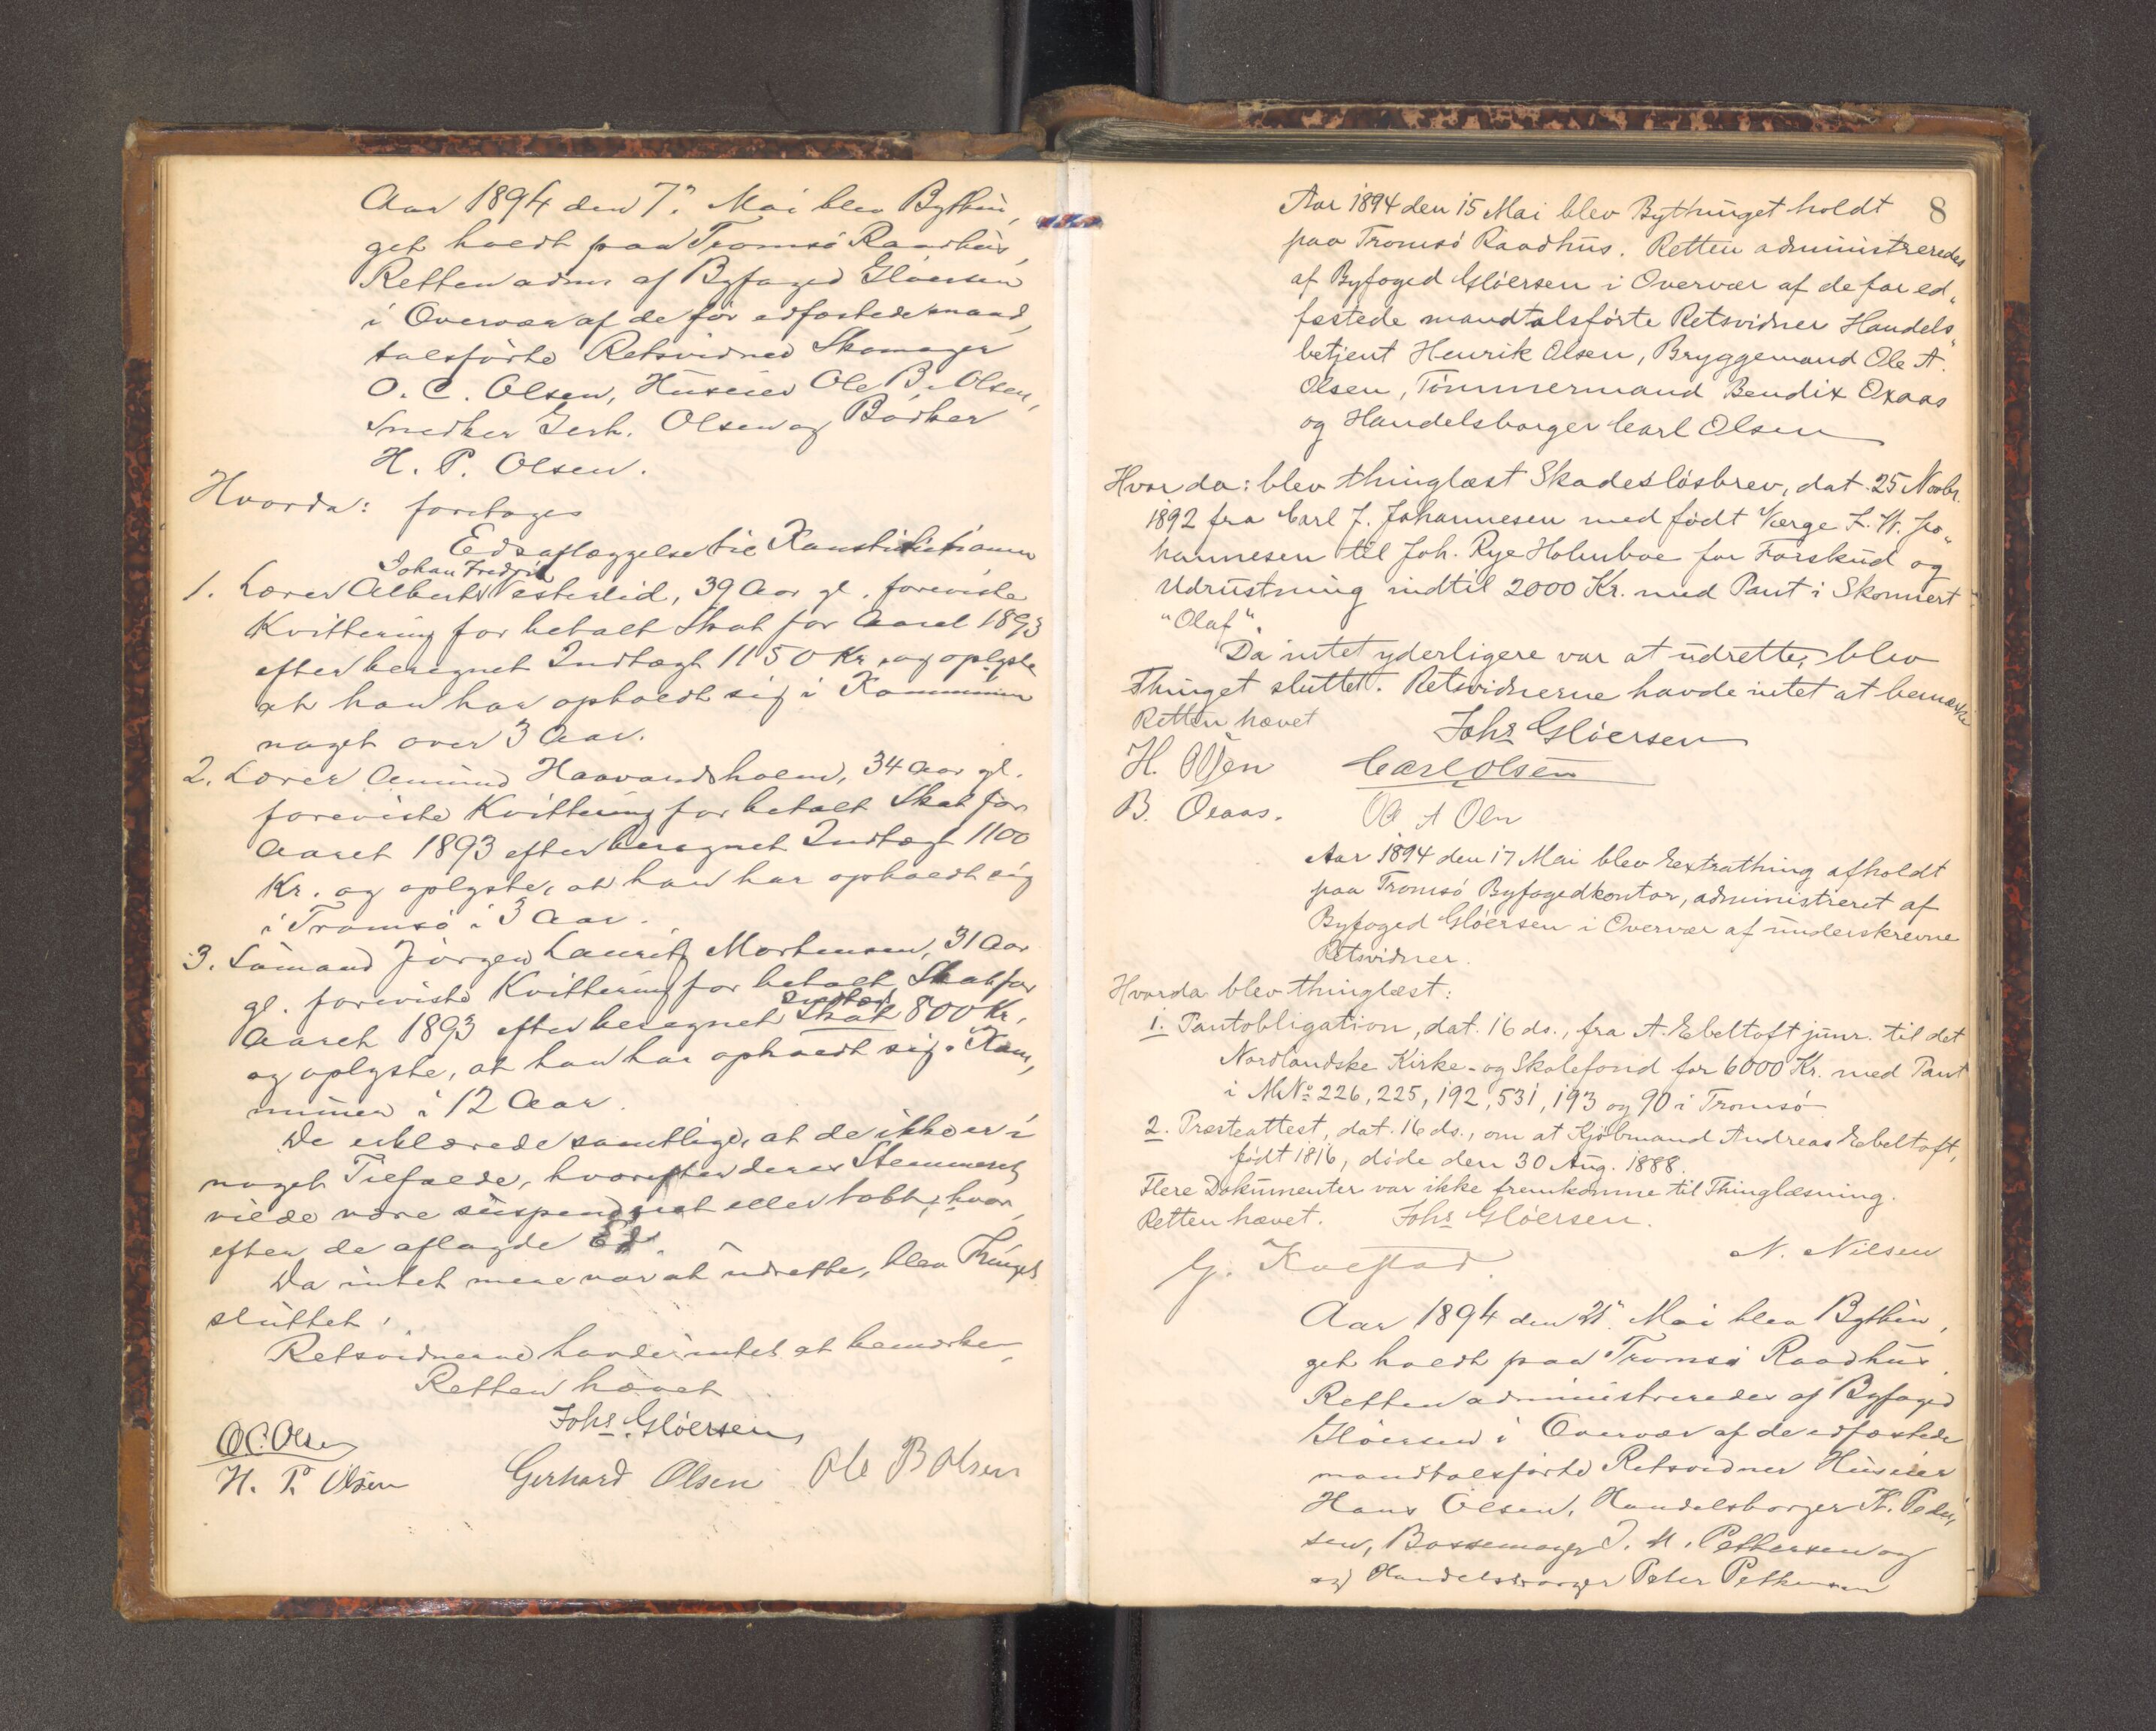 Aar 1894 den 7. Mai blev Bythin,
get holdt paa Tromsö Raadhus,
Retten adm. af Byfoged Glöersen
i Overvær af de før edfæstede mand,
talsførte Retsvidner Skomager
O. C. Olsen, Huseier Ole B. Olsen,
Snedker Gerh. Olsen og Bødker
H. P. Olsen.
Hvorda: foretoges
Edsaflæggelse til Konstitutionen
Johan Fredrik
1. Lærer Albert Vesterlid, 39 Aar gl. foreviste
Kvittering for betalt Skat for Aaret 1893
efter beregnet Indtægt 1150 Kr. og oplyste
at han har opholdt sig i Kommunen
noget over 3 Aar.
2. Lærer Amund Haavardsholm, 34 Aar gl.
foreviste Kvittering for betalt Skat for
Aaret 1893 efter beregnet Indtægt 1100
Kr. og oplyste, at han har opholdt sig
i Tromsö i 3 Aar.
3. Sömand Jörgen Lauritz Mortensen, 31 Aar
gl. foreviste Kvittering for betalt Skat for
Indtægt
Aaret 1893 efter beregnet Skat 800 Kr.
og oplyste, at han har opholdt sig i Kom,
munen i 12 Aar.
De erklærede samtlige, at de ikke er i
noget Tilfælde, hvorefter deres Stemmeret
vilde være suspenderet eller tabt, hvor,
efter de aflagde Ed.
Da intet mere var at udrette, blev Thinget
sluttet.
Retsvidnerne havde intet at bemærke
Retten hævet
Johs Glöersen
O.C. Olsen
H. P. Olsen Gerhard Olsen Ole B Olsen
8
Aar 1894 den 15 Mai blev Bythinget holdt
paa Tromsö Raadhus. Retten administreredes
af Byfoged Glöersen i Overvær af de før ed„
fæstede mandtalsførte Retsvidner Handels„
betjent Henrik Olsen, Bryggemand Ole A.
Olsen, Tömmermand Bendix Oxaas
og Handelsborger Carl Olsen
Hvor da: blev thinglæst Skadeslösbrev, dat. 25 Novbr.
1892 fra Carl J. Johannesen med födt Værge L. W. Jo„
hannesen til Joh. Rye Holmboe for Forskud og
Udrustning indtil 2000 Kr. med Pant i Skonnert
"Olaf".
Da intet yderligere var at udrette, blev
Thinget sluttet. Retsvidnerne havde intet at bemærke
Retten hævet Johs Glöersen
H. Olsen Carl Olsen
B. Oxaas. Ole A Olsen
Aar 1894 den 17 Mai blev Extrathing afholdt
paa Tromsö Byfogedkontor, administreret af
Byfoged Glöersen i Overvær af underskrevne
Retsvidner.
Hvorda blev thinglæst:
1. Pantobligation, dat. 16 ds., fra A. Ebeltoft junr. til det
Nordlandske Kirke- og Skolefond for 6000 Kr. med Pant
i M.No. 226, 225, 192, 531, 193 og 90 i Tromsö
2. Præsteattest, dat. 16 ds., om at Kjöbmand Andreas Ebeltoft,
födt 1816, döde den 30 Aug. 1888.
Flere Dokumenter var ikke fremkomne til Thinglæsning.
Retten hævet. Johs Glöersen.
N. Nilsen
G. Kvestad
Aar 1894 den 21. Mai blev Bythin,
get holdt paa Tromsö Raadhus.
Retten administreredes af Byfoged
Glöersen i Overvær af de edfæstede
mandtalsførte Retsvidner Huseier
Hans Olsen, Handelsborger K. Peder,
sen, Bossemager J. M. Pettersen og
og Handelsborger Peter Pettersen